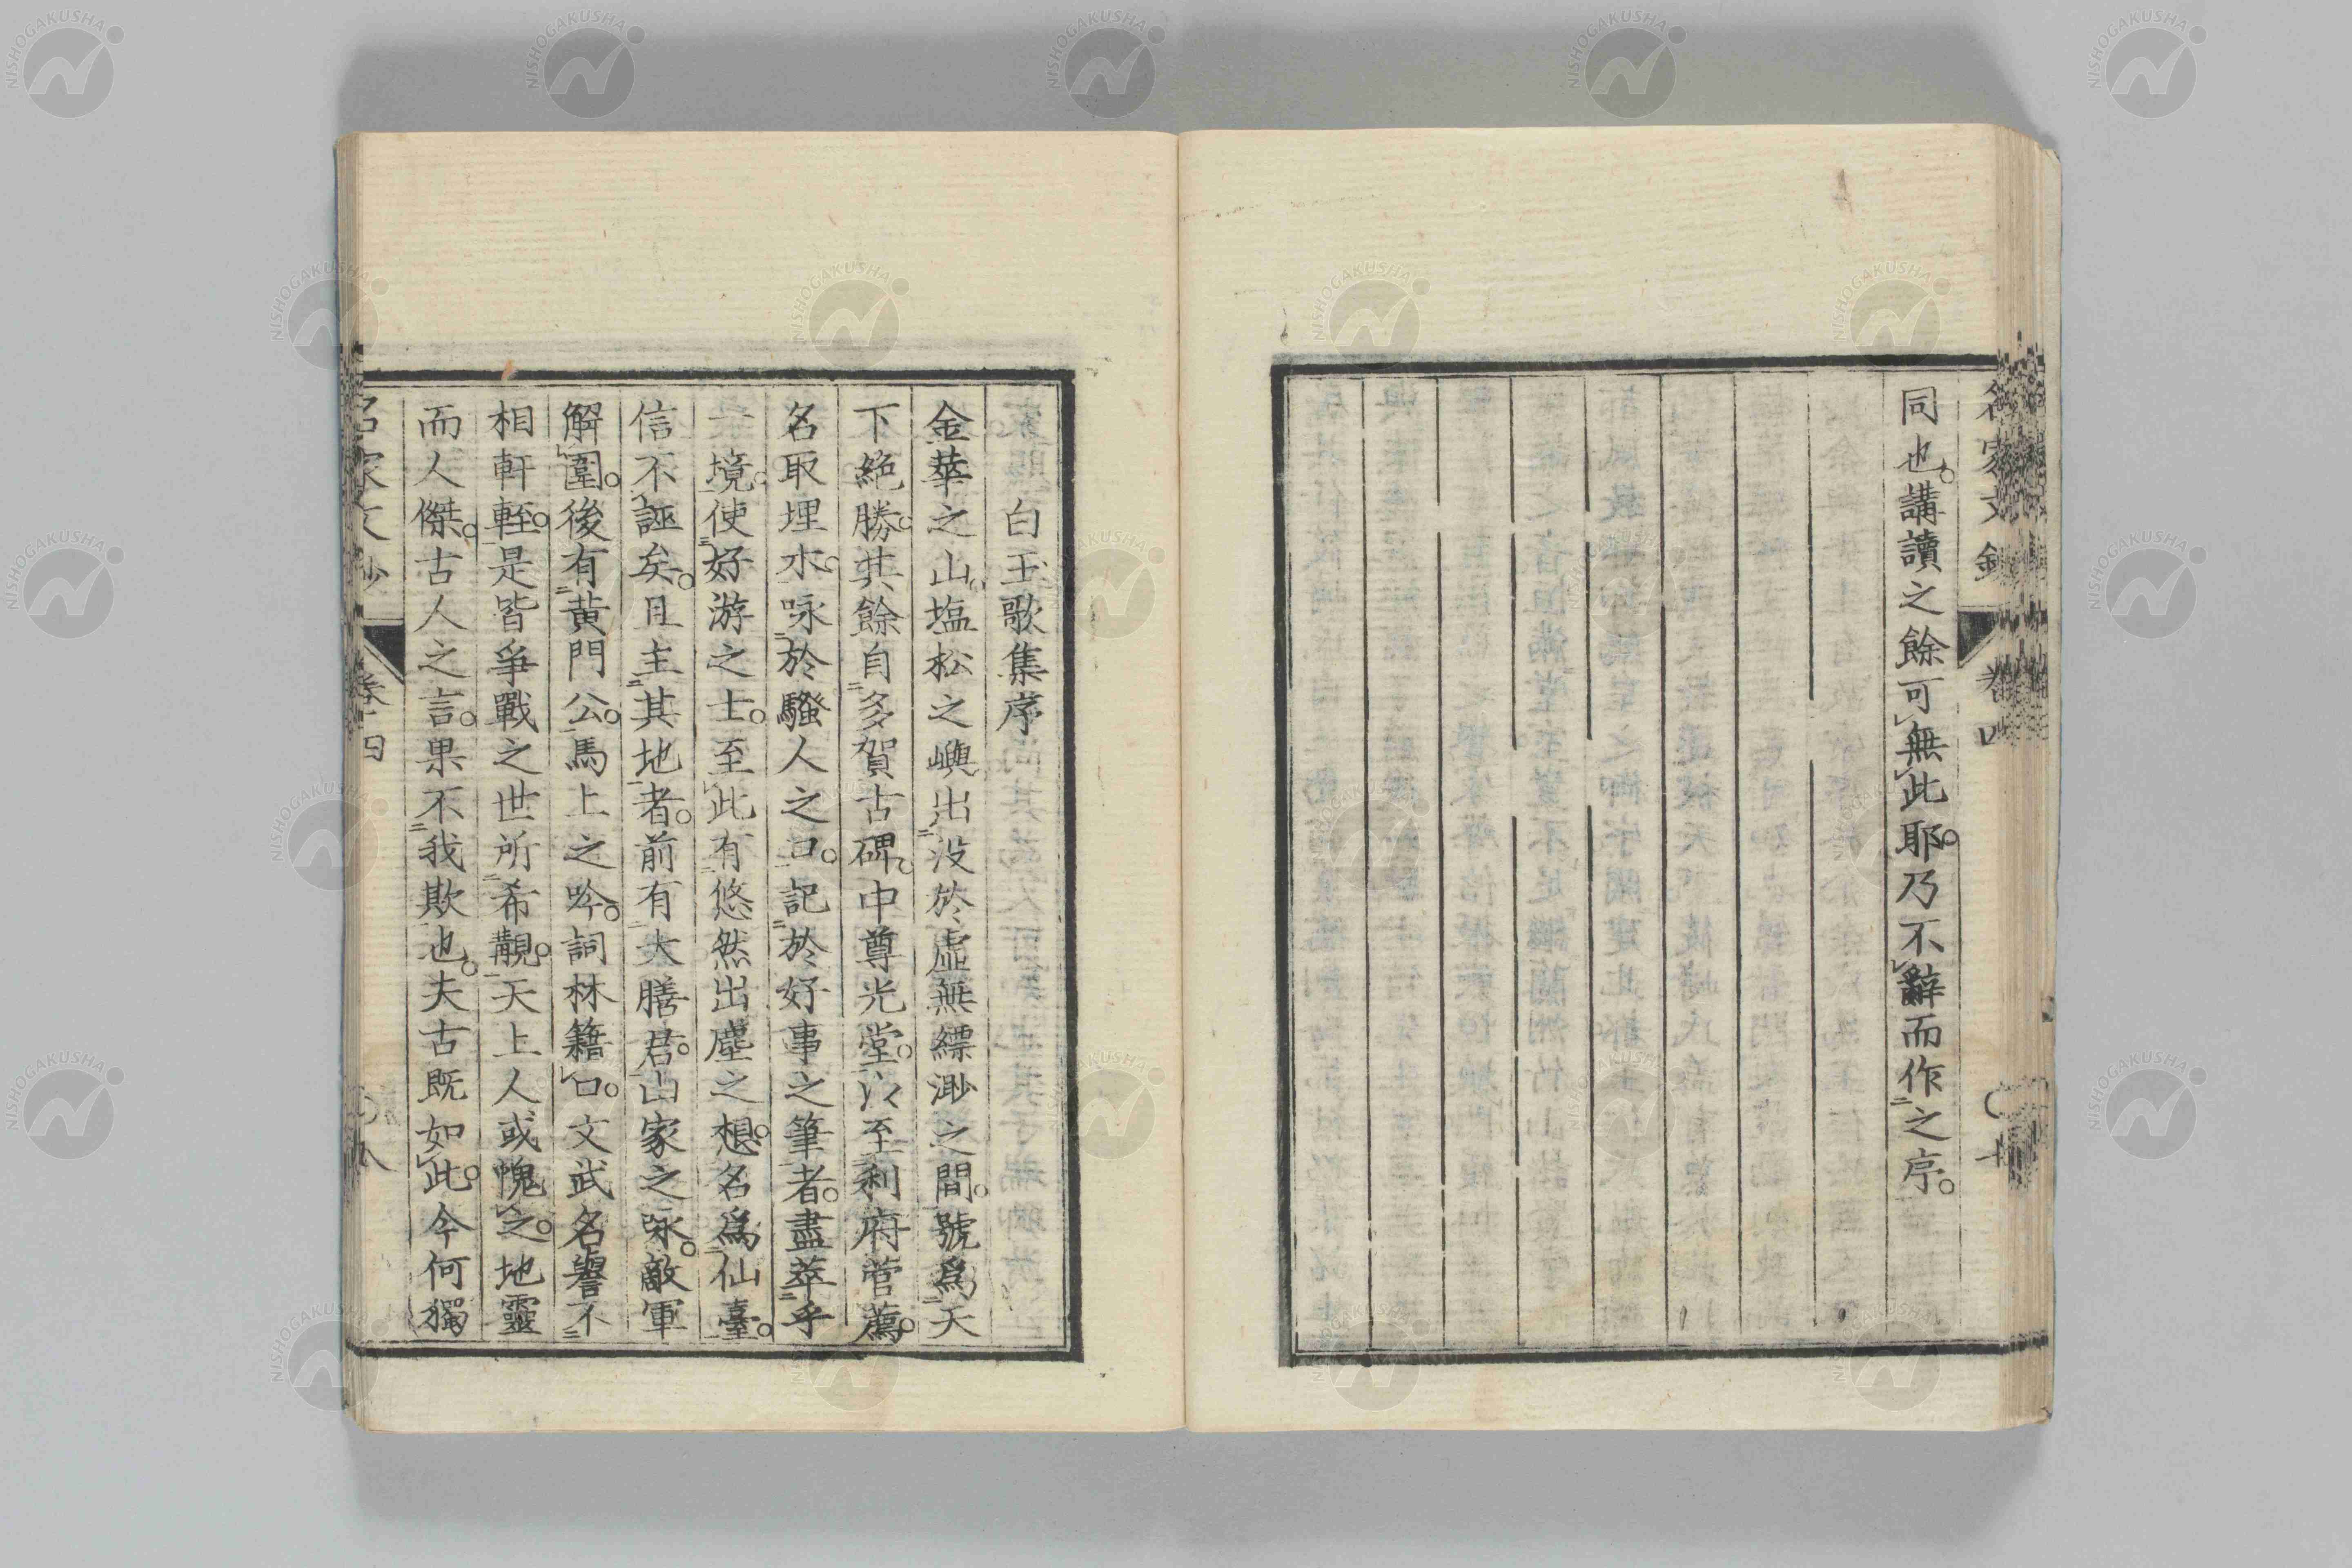 名家文鈔
卷四
同也。講讀之餘可無此耶。乃不辭而作之序。
白玉歌集序
金華之山。塩松之嶼出没於虛無縹渺之間。號爲天
下絶勝。其餘自多賀古碑。中尊光堂。以至利府菅薦。
名取埋水。咏於騷人之口。記於好事之筆者。盡萃乎
一境。使好游之士。至此有悠然出塵之想。名爲仙臺。
信不誣矣。且主其地者。前有大膳君。山家之咏。敵軍
解圍。後有黃門公。馬上之吟。詞林籍口。文武名譽不
相軒輊。是皆爭戰之世所希覯。天上人或愧之。地靈
而人傑。古人之言。果不我欺也。夫古既如此。今何獨
名家文鈔
卷四
八
NISHOGAKUSHA